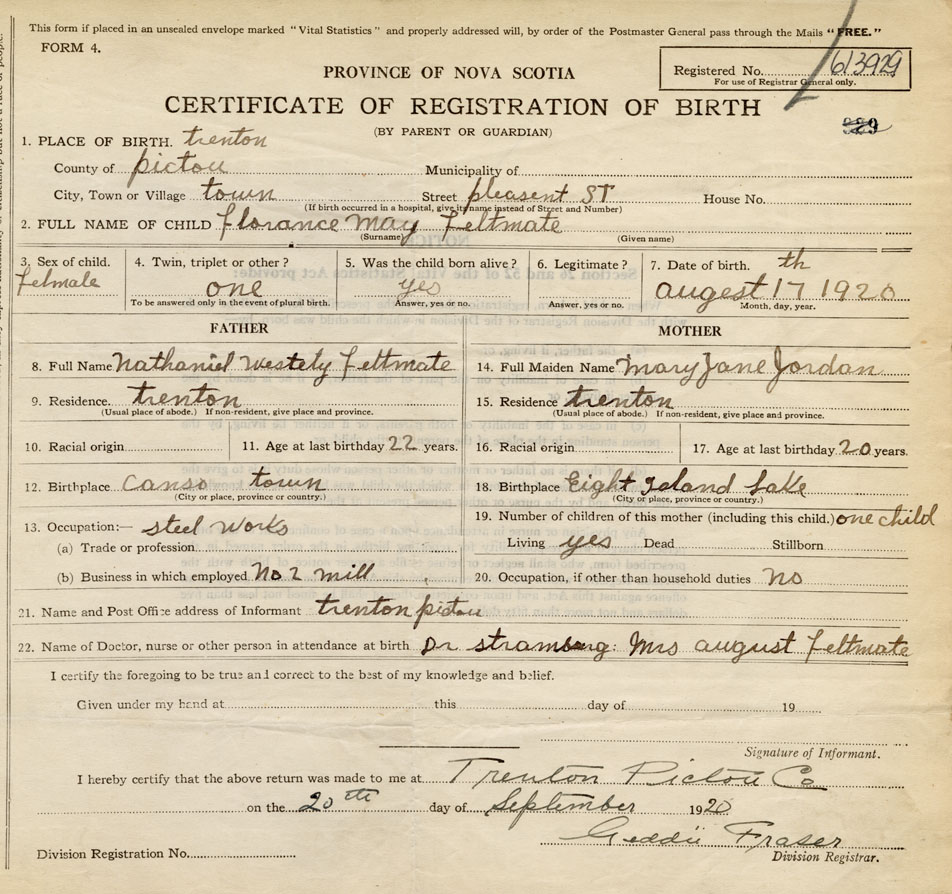 This form if placed in an unsealed envelope marked "Vital Statistics" and properly addressed will, by order of the Postmaster General pass through the Mails "FREE."
FORM 4.
Registered No. 613929
For use of Registrar General only.
PROVINCE OF NOVA SCOTIA
CERTIFICATE OF REGISTRATION OF BIRTH
(BY PARENT OR GUARDIAN)
929
1. PLACE OF BIRTH. trenton
County of pictou Municipality of
City, Town or Village town Street pleasent ST House No.
(If birth occurred in a hospital, give its name instead of Street and Number)
2. FULL NAME OF CHILD florance may feltmate
(Surname) (Given name)
3. Sex of child. felmale 4. Twin, triplet or other? one 5. Was the child born alive? yes 6. Legitimate? 7. Date of birth. august 17th 1920
To be answered only in the event of plural birth. Answer, yes or no. Answer, yes or no. Month, day, year.
FATHER MOTHER
8. Full Name Nathaniel Westely feltmate 14. Full Maiden Name Mary Jane Jordan
9. Residence. trenton 15. Residence trenton
(Usual place of abode.) If non-resident, give place and province. (Usual place of abode.) If non-resident, give place and province.
10. Racial origin 11. Age at last birthday 22 years. 16. Racial origin 17. Age at last birthday 20 years.
12. Birthplace canso town 18. Birthplace Eight Island Lake
(City or place, province or country.) (City or place, province or country.)
13. Occupation:— steel works 19. Number of children of this mother (including this child.) one child
(a) Trade or profession Living yes Dead Stillborn
(b) Business in which employed No 2 mill 20. Occupation, if other than household duties no
21. Name and Post Office address of Informant trenton pictou
22. Name of Doctor, nurse or other person in attendance at birth Dr stramberg: Mrs august feltmate
I certify the foregoing to be true and correct to the best of my knowledge and belief.
Given under my hand at this day of 19
Signature of Informant.
I hereby certify that the above return was made to me at Trenton Pictou Co
on the 20th day of September 1920
Fraser
Division Registration No. Division Registrar.